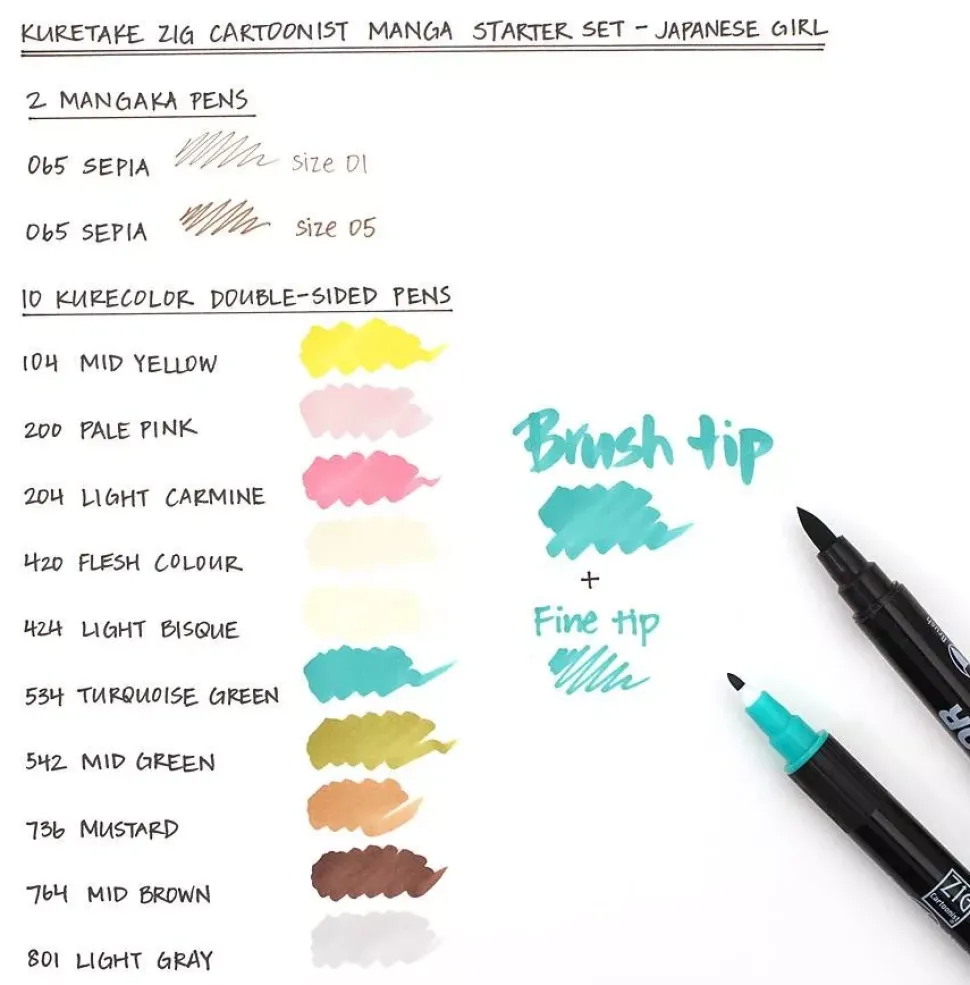 KURETAKE ZIG CARTOONIST MANGA STARTER SET - JAPANESE GIRL
2 MANGAKA PENS
065 SEPIA size 01
065 SEPIA size 05
10 KURECOLOR DOUBLE-SIDED PENS
104 MID YELLOW
200 PALE PINK
204 LIGHT CARMINE
420 FLESH COLOUR
424 LIGHT BISQUE
534 TURQUOISE GREEN
542 MID GREEN
736 MUSTARD
764 MID BROWN
801 LIGHT GRAY
Brush tip
+
Fine tip
Brush
OR
ZIG
Cartoonist